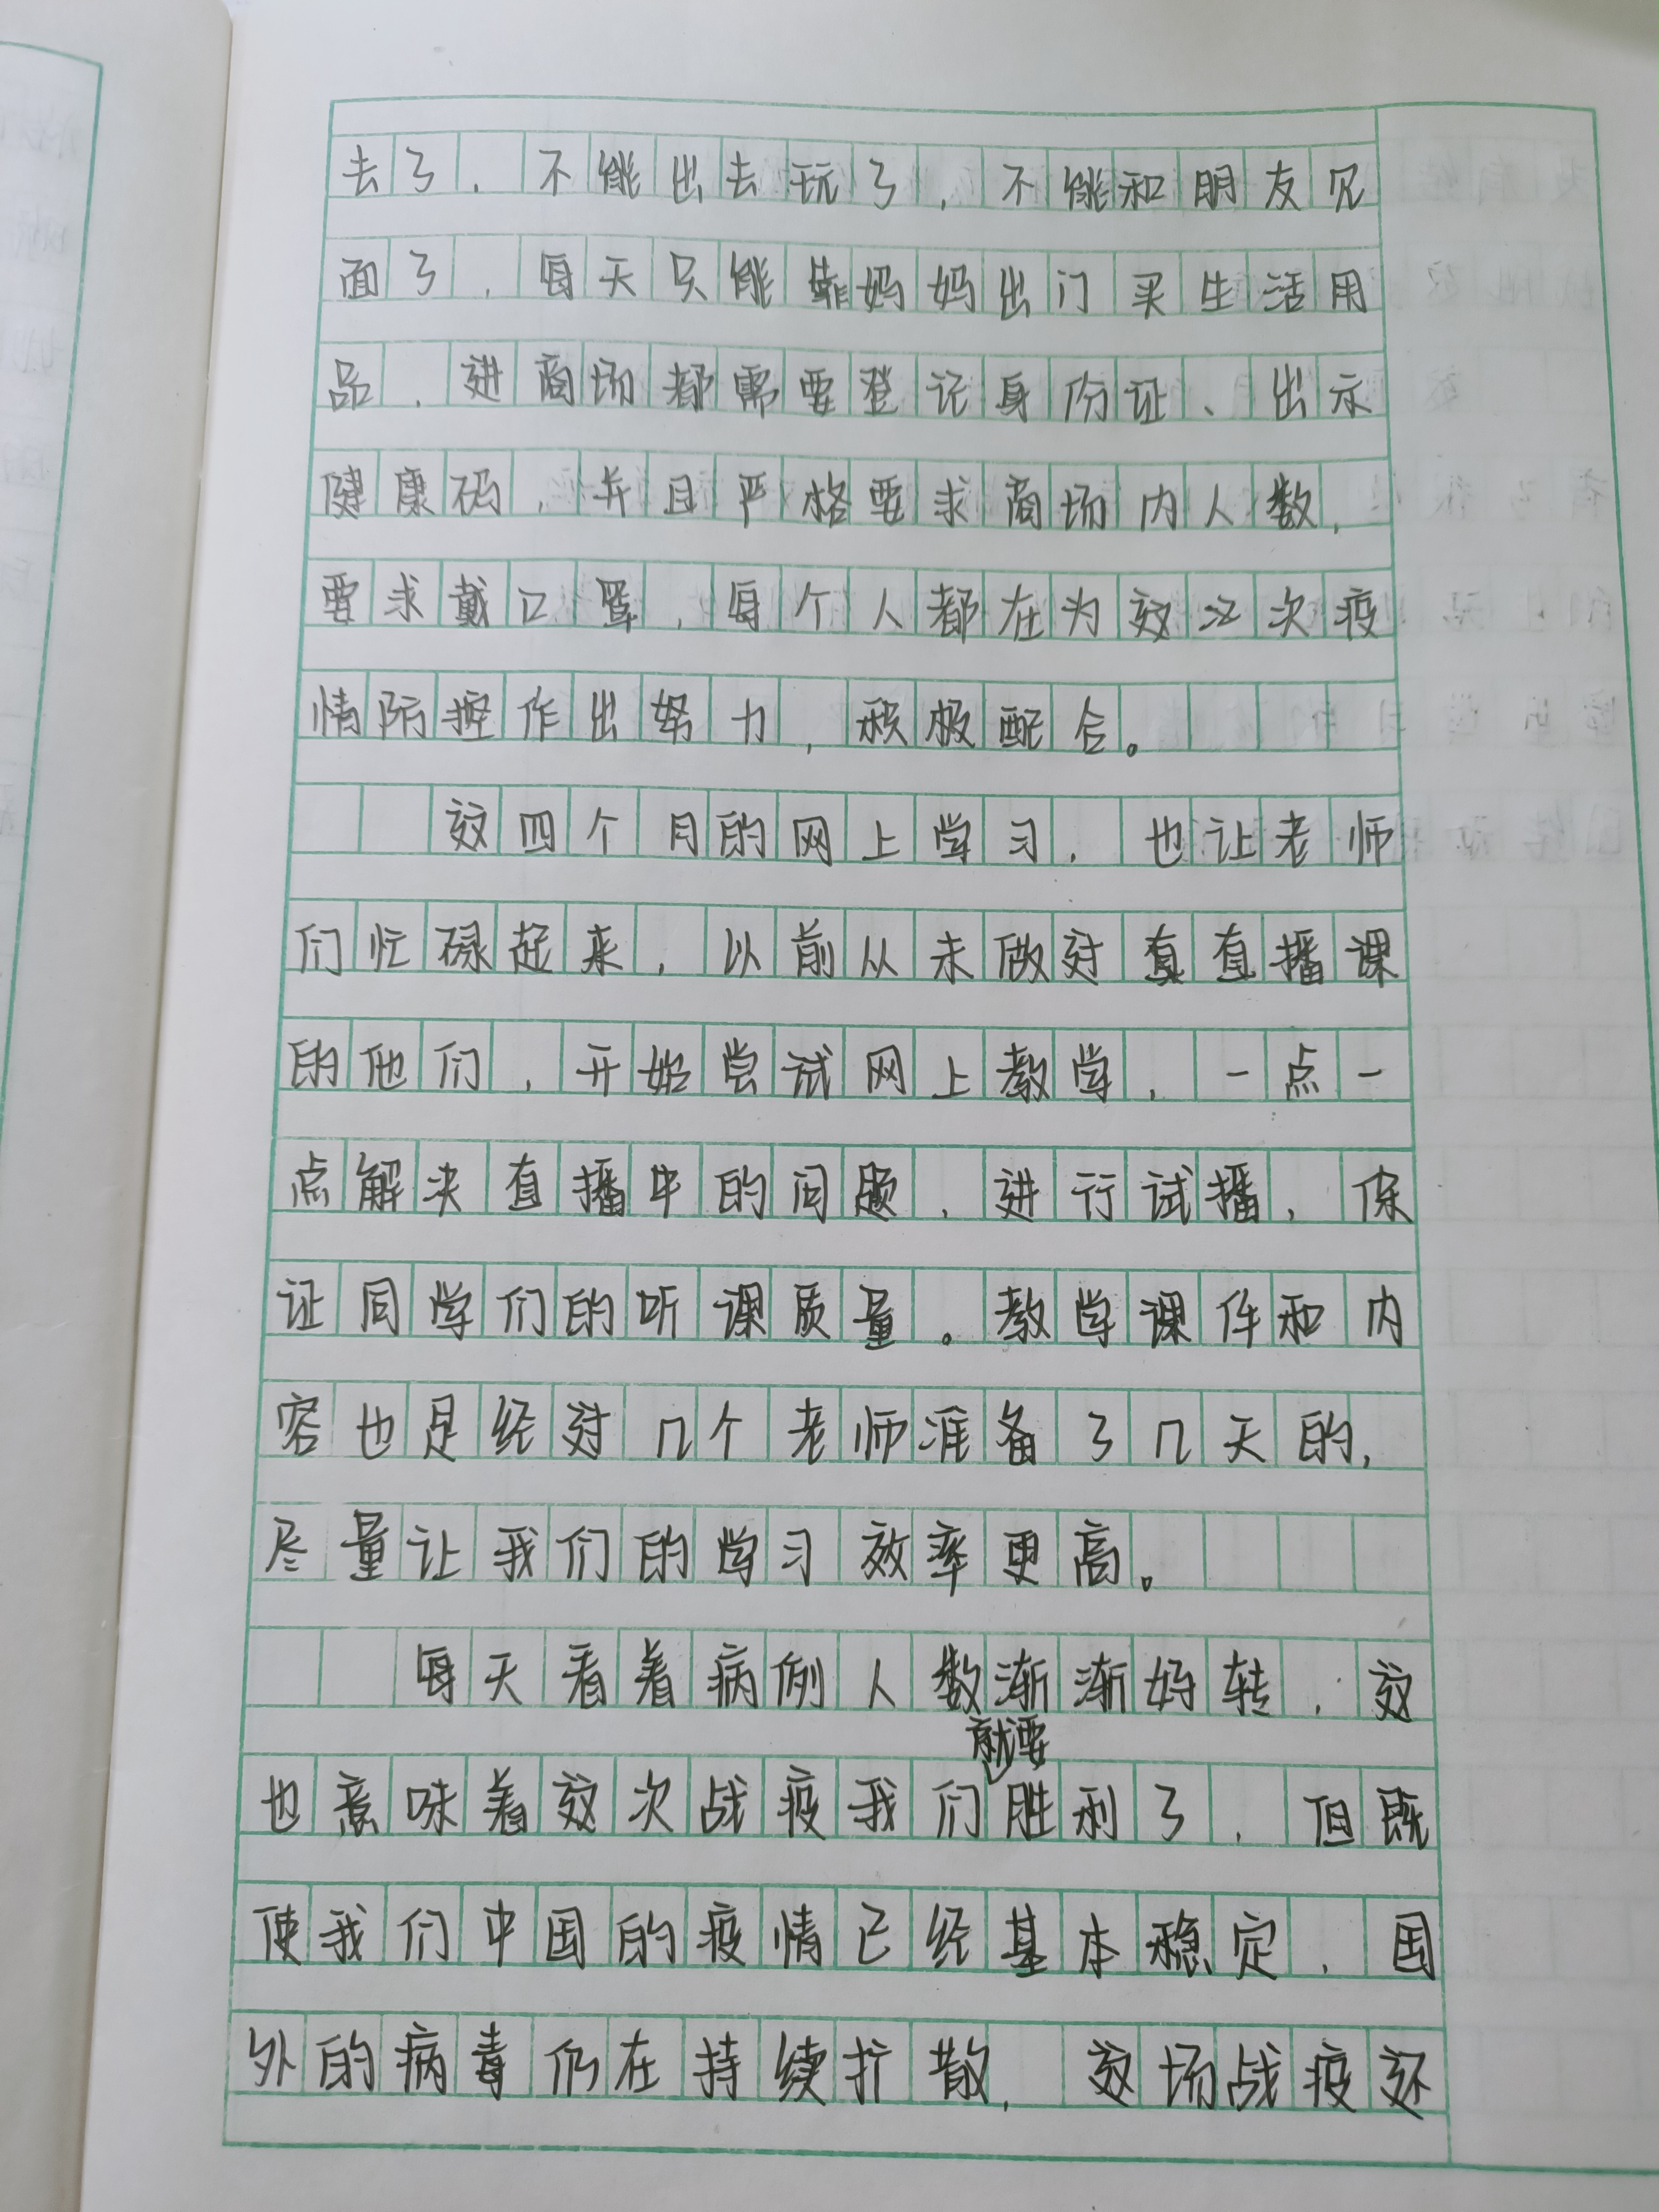 去了，不能出去玩了，不能和朋友见
面了，每天只能靠妈妈出门买生活用
品，进商场都需要登记身份证、出示
健康码，并且严格要求商场内人数，
要求戴口罩，每个人都在为这次疫
情防控作出努力，积极配合。
这四个月的网上学习，也让老师
们忙碌起来，以前从未做过直播课
的他们，开始尝试网上教学，一点一
点解决直播中的问题，进行试播，保
证同学们的听课质量。教学课件和内
容也是经过几个老师准备了几天的，
尽量让我们的学习效率更高。
每天看着病例人数渐渐好转，这
也意味着这次战疫我们就要胜利了，但既
使我们中国的疫情已经基本稳定，国
外的病毒仍在持续扩散，这场战疫还